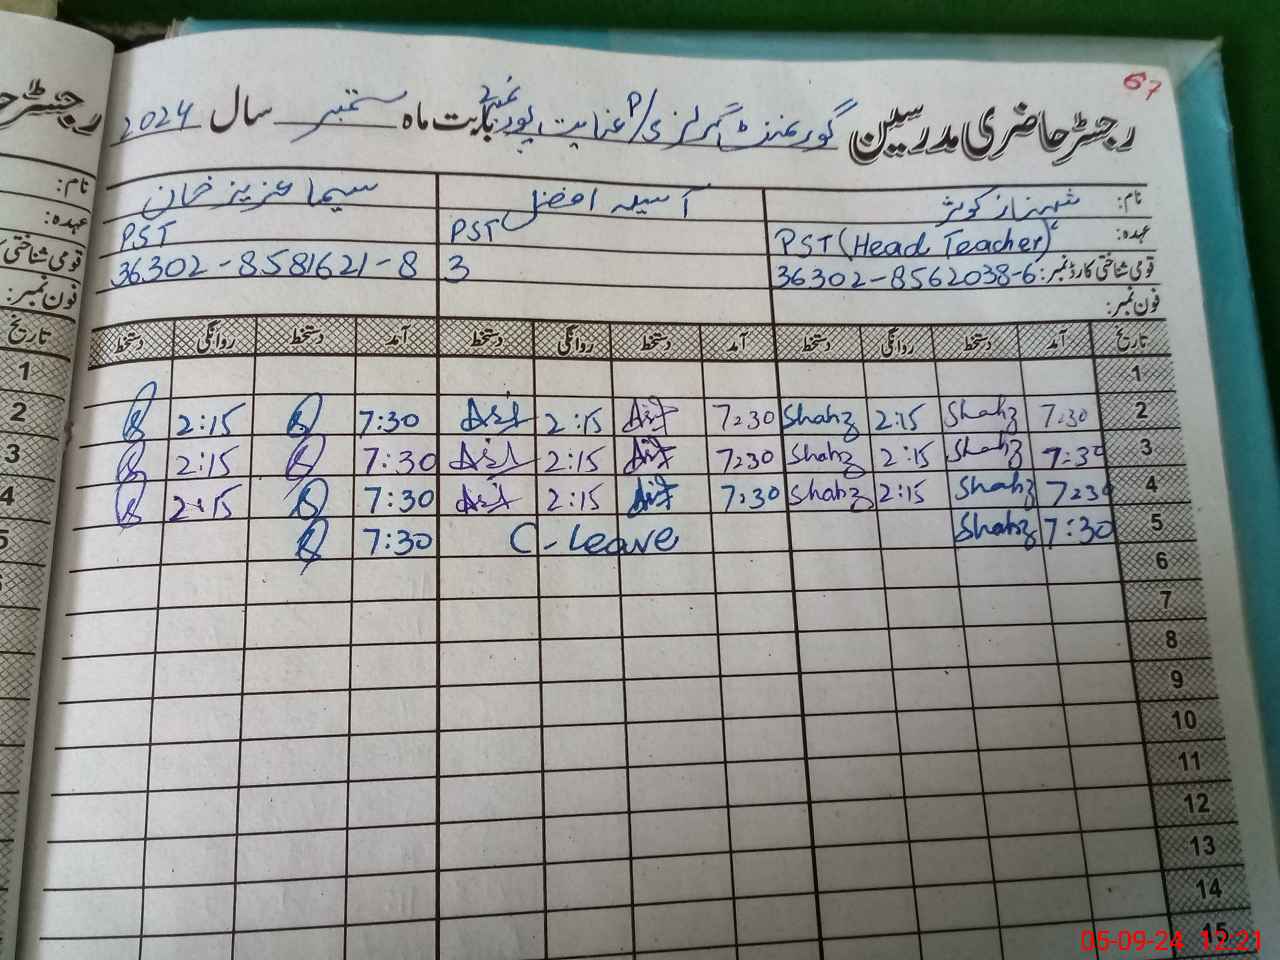 67
رجسٹر حاضری مدرسین گورنمنٹ گرلز P/ی عنایت پور نمبر2 بابت ماہ ستمبر سال 2024
نام: شہناز کوثر آسیہ افضل سیما عزیز خان
عہدہ: PST (Head Teacher) PST PST
قومی شناختی کارڈ نمبر: 36302-8562038-6 3 36302-8581621-8
فون نمبر:
تاریخ آمد دستخط روانگی دستخط آمد دستخط روانگی دستخط آمد دستخط روانگی دستخط
1
2 7:30 Shahz 2:15 Shahz 7:30 2:15 7:30 2:15
3 7:30 Shahz 2:15 Shahz 7:30 2:15 7:30 2:15
4 7:30 Shahz 2:15 Shahz 7:30 2:15 7:30 2:15
5 7:30 Shahz C-Leave 7:30
6
7
8
9
10
11
12
13
14
15
رجسٹر
نام:
عہدہ:
قومی شناختی
فون نمبر:
تاریخ
1
2
3
4
5
05-09-24 12:21